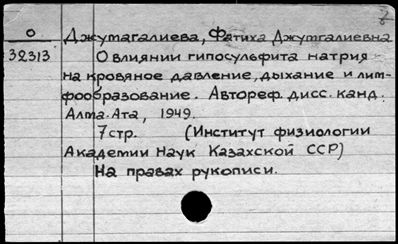 О
32313
Джутагалиева, Фатиха Джутгалиевна
О влиянии гипосульфита натрия
на кровяное давление, дыхание и лим-
фообразование. Автореф. дисс. канд.
Алма-Ата, 1949.
7стр. (Институт физиологии
Академии Наук Казахской ССР)
На правах рукописи.